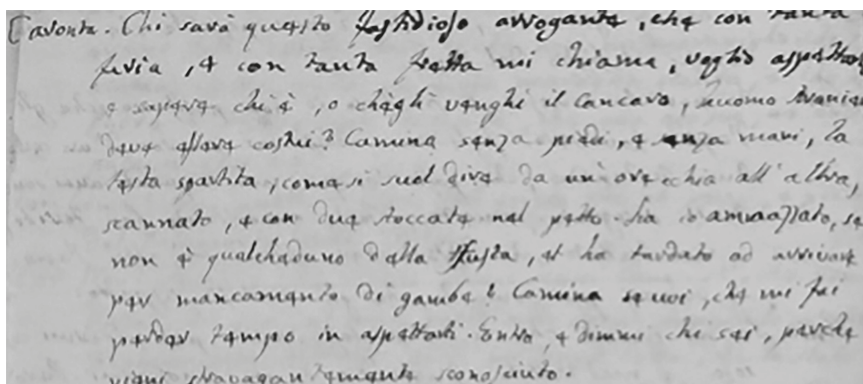 Caronte. Chi sarà questo fastidioso arrogante, che con tanta
furia, e con tanta fretta mi chiama, voglio aspettar
e sapere chi è, o che gli venghi il cancaro, huomo stranier
deve essere costui? Camina senza piedi, e senza mani, la
testa spartita, come si suol dire da un' orecchia all' altra,
scannato, e con due stoccate nel petto ha io ammazzato, se
non è qualcheduno della fusta, et ha tardato ad arrivare
per mancamento di gambe? Camina se voi, che mi fai
perder tempo in aspettarti. Entra, e dimmi chi sei, perche
vieni stravagantemente sconosciuto.